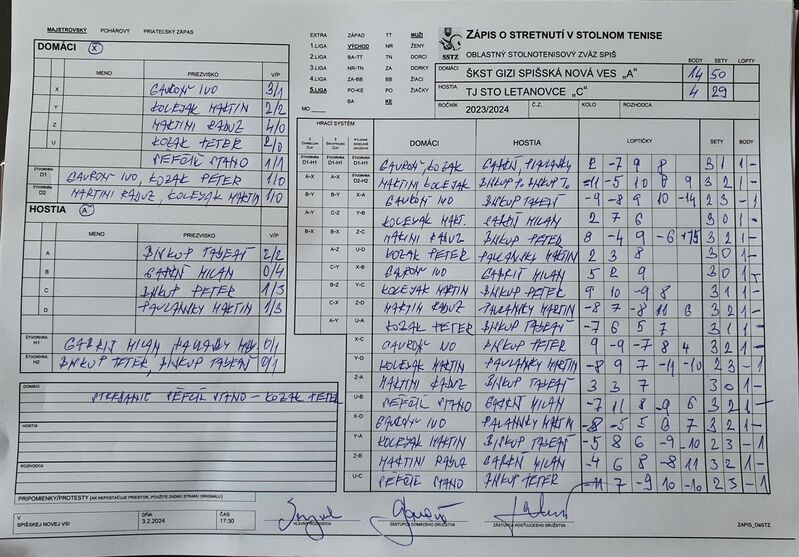 MAJSTROVSKÝ POHÁROVÝ PRIATEĽSKÝ ZÁPAS
DOMÁCI X
MENO PRIEZVISKO V/P
X GAUROŇ IVO 3/1
Y KOLEJAK MARTIN 2/2
Z MARTINI RADUZ 4/0
U KOZAK PETER 2/0
PEFČÍK STANO 1/1
ŠTVORHRA D1 GAUROŇ IVO, KOZAK PETER 1/0
ŠTVORHRA D2 MARTINI RADUZ, KOLEJAK MARTIN 1/0
HOSTIA A
MENO PRIEZVISKO V/P
A BISKUP TADEÁŠ 2/2
B MILAN 0/4
C BISKUP PETER 1/3
D PAVLANSKY MARTIN 1/3
ŠTVORHRA H1 MILAN, PAVLANSKY 0/1
ŠTVORHRA H2 BISKUP PETER, BISKUP TADEÁŠ 0/1
DOMÁCI
STRIEDANIE PEFČÍK STANO - KOZAK PETER
HOSTIA
ROZHODCA
PRIPOMIENKY/PROTESTY (AK NEPOSTAČUJE PRIESTOR, POUŽITE ZADNÚ STRANU ORIGINÁLU)
V DŇA ČAS
SPIŠSKEJ NOVEJ VSI 3.2.2024 17:30
EXTRA ZÁPAD TT MUŽI
1.LIGA VÝCHOD NR ŽENY
2.LIGA BA-TT TN DORCI
3.LIGA NR-TN ZA DORKY
4.LIGA ZA-BB BB ŽIACI
5.LIGA PO-KE PO ŽIAČKY
BA KE
MO
SSTZ
ZÁPIS O STRETNUTÍ V STOLNOM TENISE
OBLASTNÝ STOLNOTENISOVÝ ZVÄZ SPIŠ
BODY SETY LOPTY
DOMÁCI ŠKST GIZI SPIŠSKÁ NOVÁ VES „A“ 14 50
HOSTIA TJ STO LETANOVCE „C“ 4 29
ROČNÍK 2023/2024 Č.Z. KOLO ROZHODCA
HRACÍ SYSTÉM
DOMÁCI HOSTIA LOPTIČKY SETY BODY
ŠTVORHRA D1-H1 ŠTVORHRA D1-H1 ŠTVORHRA D1-H1 GAUROŇ, KOZAK PAVLANSKY 2 -7 9 8 3 1 1 -
A-X A-X ŠTVORHRA D2-H2 MARTINI KOLEJAK BISKUP P. BISKUP T. -11 -5 10 8 9 3 2 1 -
B-Y B-Y X-A GAUROŇ IVO BISKUP TADEÁŠ -9 -8 9 10 -14 2 3 - 1
A-Y C-Z Y-B KOLEJAK MART. MILAN 2 7 6 3 0 1 -
B-X B-X Z-C MARTINI RADUZ BISKUP PETER 8 -4 9 -6 +15 3 2 1 -
A-Z U-D KOZAK PETER PAVLANSKY MARTIN 2 3 8 3 0 1 -
C-Y X-B GAUROŇ IVO MILAN 5 2 9 3 0 1 -
B-Z Y-C KOLEJAK MARTIN BISKUP PETER 9 10 -9 8 3 1 1 -
C-X Z-D MARTINI RADUZ PAVLANSKY MARTIN -8 7 -8 11 6 3 2 1 -
A-Y U-A KOZAK PETER BISKUP TADEÁŠ -7 6 5 7 3 1 1 -
X-C GAUROŇ IVO BISKUP PETER 9 -9 -7 8 4 3 2 1 -
Y-D KOLEJAK MARTIN PAVLANSKY MARTIN -8 9 7 -11 -10 2 3 - 1
Z-A MARTINI RADUZ BISKUP TADEÁŠ 3 3 7 3 0 1 -
U-B PEFČÍK STANO MILAN -7 11 8 -9 6 3 2 1 -
X-D GAUROŇ IVO PAVLANSKY MARTIN -8 -5 5 6 7 3 2 1 -
Y-A KOLEJAK MARTIN BISKUP TADEÁŠ -5 8 6 -9 -10 2 3 - 1
Z-B MARTINI RADUZ MILAN -4 6 8 -8 11 3 2 1 -
U-C PEFČÍK STANO BISKUP PETER -11 7 -9 10 -10 2 3 - 1
HLAVNÝ ROZHODCA ZÁSTUPCA DOMÁCEHO DRUŽSTVA ZÁSTUPCA HOSŤUJÚCEHO DRUŽSTVA ZAPIS_DsSTZ